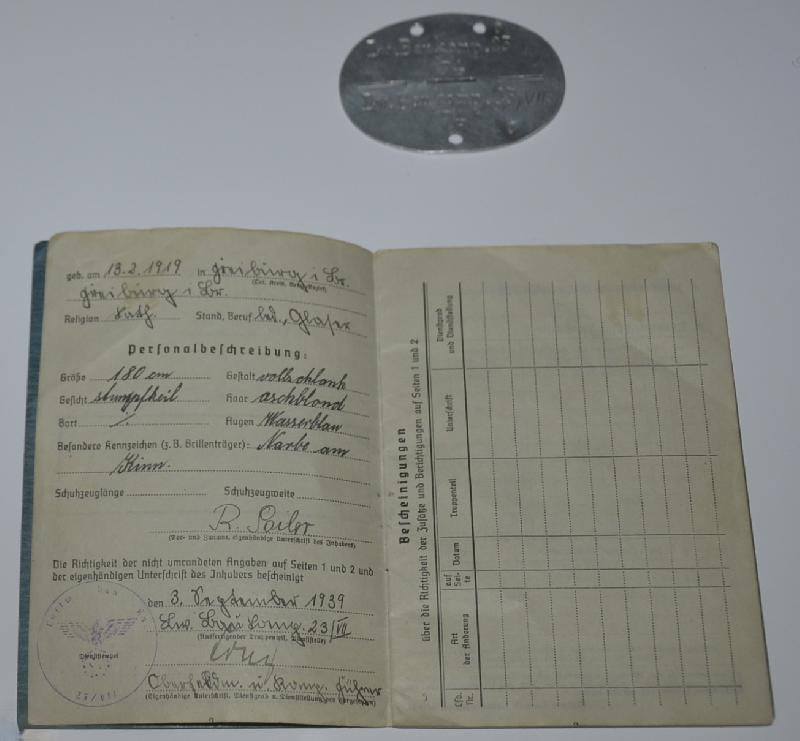 Lw.Bau.Komp.23
VII
Lw.Bau.Komp.23/VII
geb. am 13.2.1919 in Freiburg i Br.
(Ort, Kreis, Verw.-Bezirk)
Freiburg i Br.
Religion kath. Stand, Beruf led., Glaser
Personalbeschreibung:
Größe 180 cm Gestalt vollschlank
Gesicht stumpfkeil Haar aschblond
Bart ٪ Augen Wasserblau
Besondere Kennzeichen (z. B. Brillenträger): Narbe am
Kinn.
Schuhzeuglänge Schuhzeugweite
R. Sailer
(Vor- und Zuname, eigenhändige Unterschrift des Inhabers)
Die Richtigkeit der nicht umrandeten Angaben auf Seiten 1 und 2 und
der eigenhändigen Unterschrift des Inhabers bescheinigt
den 3. September 1939
Lw. Bau Komp. 23/VII
(Ausfertigender Truppenteil, Dienststelle)
Dienststempel
Oberfeldm. u. Komp. Führer
(Eigenhändige Unterschrift, Dienstgrad u. Dienststellung des Vorgesetzten)
Bescheinigungen
über die Richtigkeit der Zusätze und Berichtigungen auf Seiten 1 und 2
Lfd. Nr.
Art der Änderung
auf Seite
Datum
Truppenteil
Unterschrift
Dienstgrad und Dienststellung